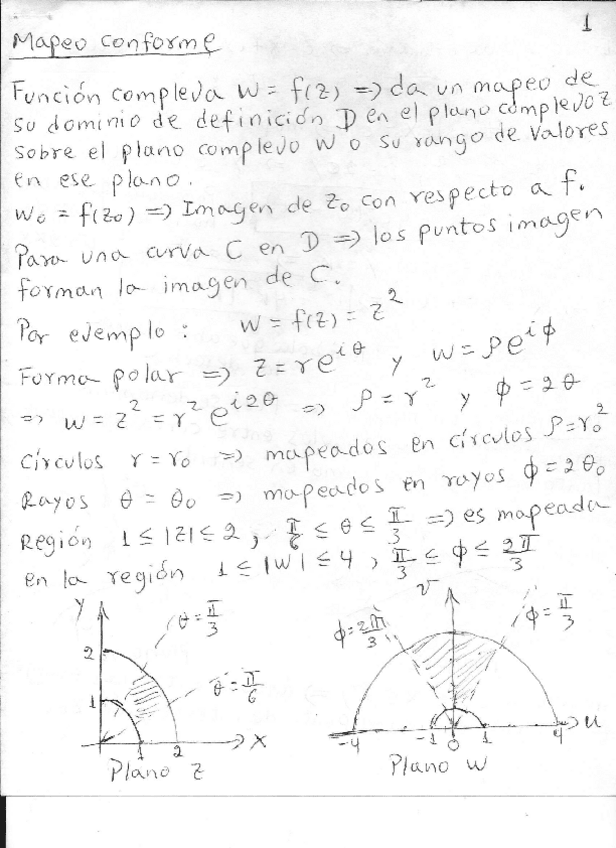 1
Mapeo conforme
Función compleja w = f(z) => da un mapeo de
su dominio de definición D en el plano complejo z
sobre el plano complejo w o su rango de valores
en ese plano.
w₀ = f(z₀) => Imagen de z₀ con respecto a f.
Para una curva C en D => los puntos imagen
forman la imagen de C.
Por ejemplo : w = f(z) = z²
Forma polar => z = re^{iθ} y w = ρe^{iϕ}
=> w = z² = r²e^{i2θ} => ρ = r² y ϕ = 2θ
Círculos r = r₀ => mapeados en círculos ρ = r₀²
Rayos θ = θ₀ => mapeados en rayos ϕ = 2θ₀
Región 1 ≤ |z| ≤ 2, π/6 ≤ θ ≤ π/3 => es mapeada
en la región 1 ≤ |w| ≤ 4, π/3 ≤ ϕ ≤ 2π/3
y
θ = π/3
2
θ = π/6
1
1 2 x
Plano z
v
ϕ = 2π/3
ϕ = π/3
-4 -1 0 1 4 u
Plano w